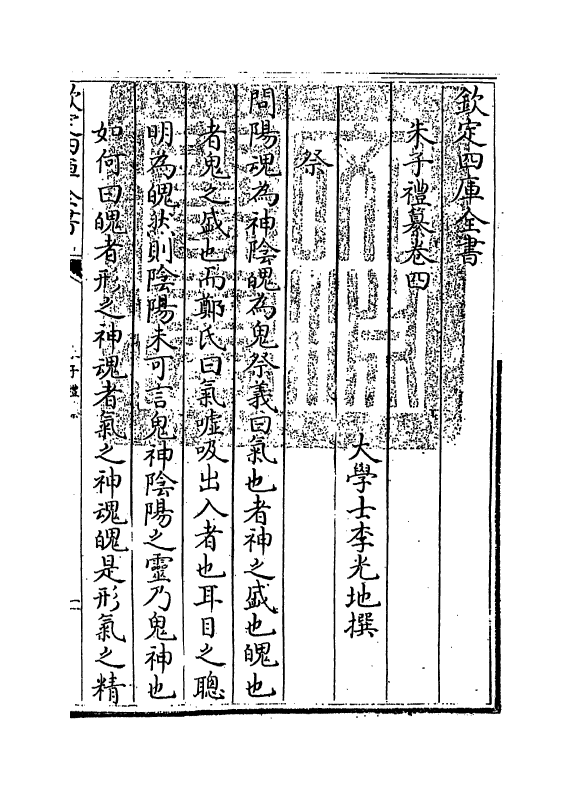 欽定四庫全書
朱子禮纂卷四
大學士李光地撰
祭
問陽魂為神陰魄為鬼祭義曰氣也者神之盛也魄也
者鬼之盛也而鄭氏曰氣噓吸出入者也耳目之聰
明為魄然則陰陽未可言鬼神陰陽之靈乃鬼神也
如何曰魄者形之神魂者氣之神魂魄是形氣之精
欽定四庫全書